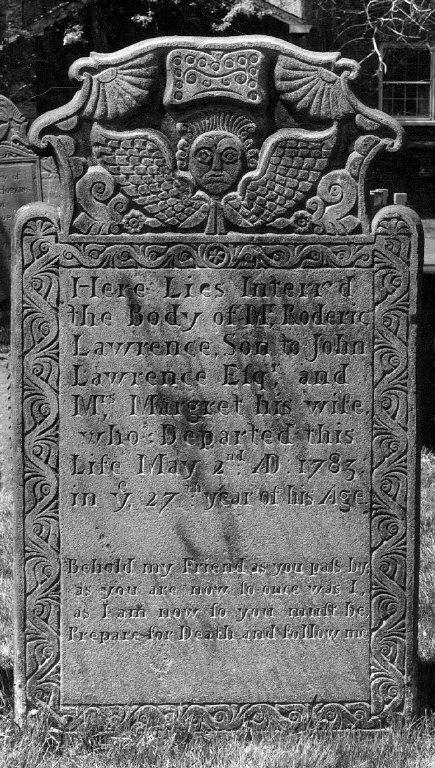 Here Lies Interr'd
the Body of Mr. Roderic
Lawrence, Son to John
Lawrence Eſqr. and
Mrs. Margret his wife,
who Departed this
Life May 2nd. AD: 1783,
in ye. 27th. year of his Age
Behold my Friend as you paſs by
as you are now ſo once was I,
as I am now ſo you muſt be
Prepare for Death and follow me